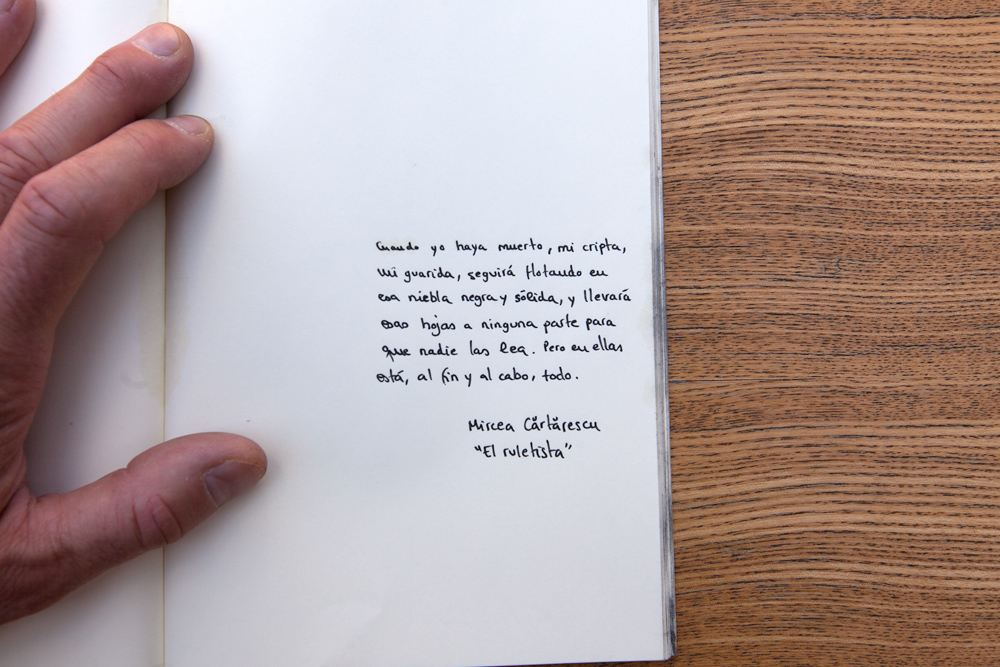 Cuando yo haya muerto, mi cripta,
mi guarida, seguirá flotando en
esa niebla negra y sólida, y llevará
esas hojas a ninguna parte para
que nadie las lea. Pero en ellas
está, al fin y al cabo, todo.
Mircea Cărtărescu
"El ruletista"